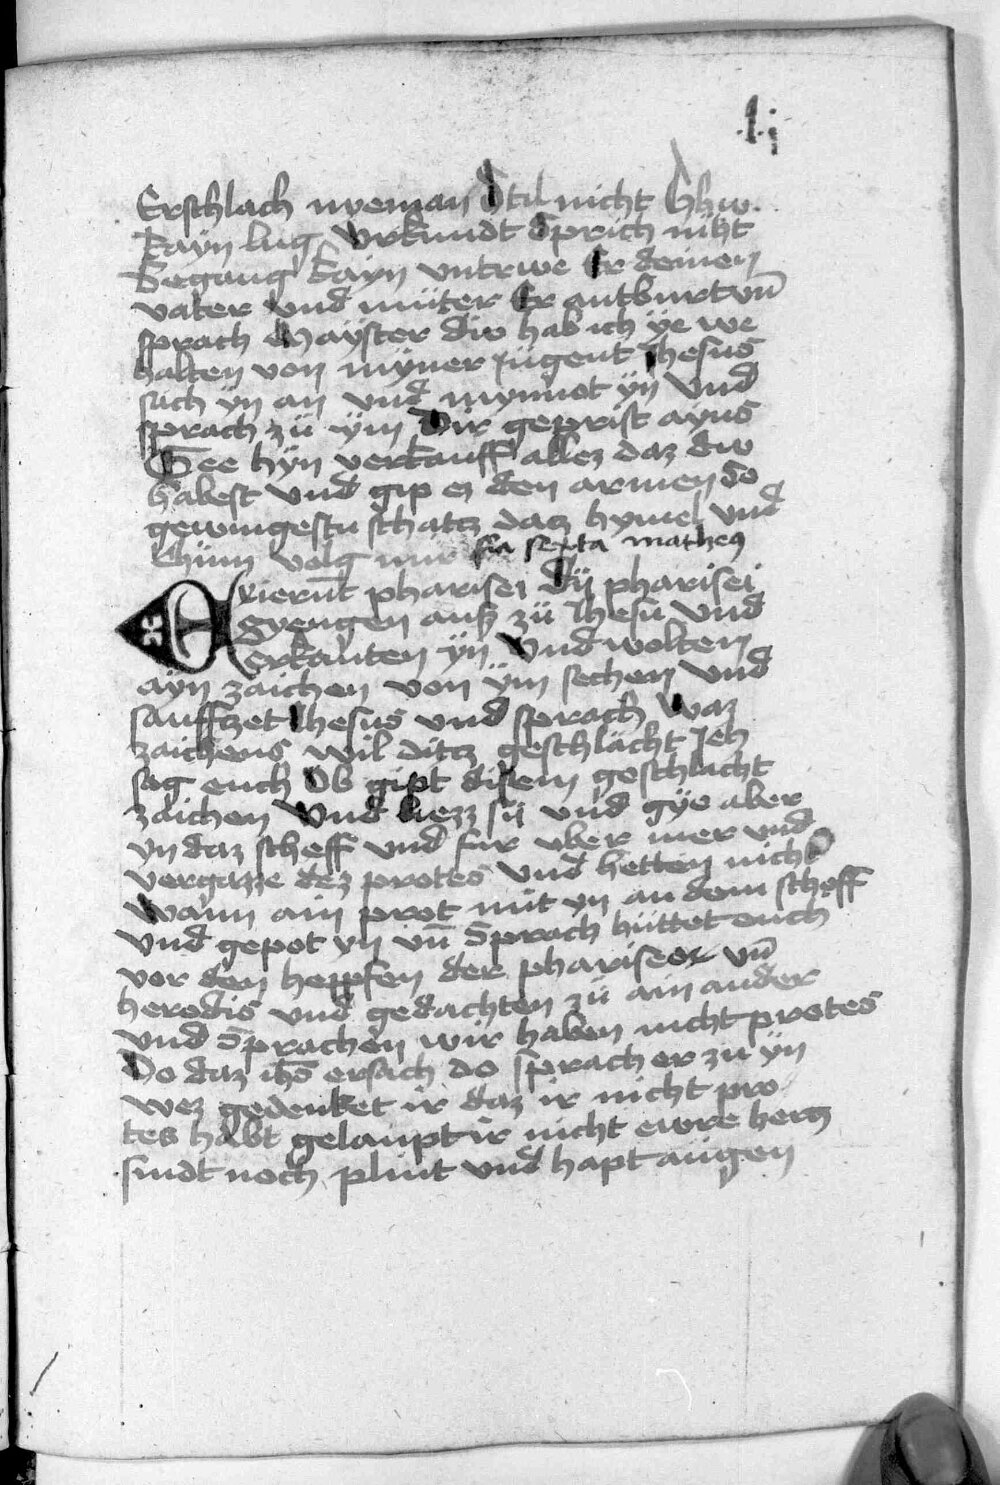 .lj.
Erschlach nyeman Stil nicht Chiw
kayn lug Vrkundt Sprich niht
Begang kayn vntrwe Er deinen
vater Vnd müter Er antburt vn̄
sprach Mayster diw hab ich ye we
halten von myner Jügent Jhesus
sach yn an vnd mynnot yn Vnd
sprach zü ÿm Dir geprist ayns
Gee hÿn verkauff allez daz diw
habest Vnd gip ez den armen So
gewingestu schatz datz hymel Vnd
chum volg mir fīa sexta matheus
Exierūt pharisei Dÿ pharisei
gyengen auß zü Jhesu Vnd
erkanten ÿn Vnd wolten
ayn zaichen von ÿm sechen Vnd
sauffzet Jhesus vnd sprach Waz
zaichens wil ditz geschlächt Jch
sag euch Ob gipt disem geschlächt
zaichen Vnd liezz sÿ vnd gye aber
yn daz scheff vnd fur vber mer vnd
vergazze dez protes Vnd hetten nicht
Wann ain prot mit yn an dem scheff
Vnd gepot yn vn̄ Sprach hüttet euch
vor den heppfen der phariseor vn̄
herodis vnd gedachten zü ain ander
vnd Sprachen wir haben nicht protes
Do daz ihs̄ ersach do sprach er zu ÿn
wez gedenket ir daz ir nicht pro
tes habt gelaupt ir nicht ewre hercz
sindt noch plint vnd hapt augen